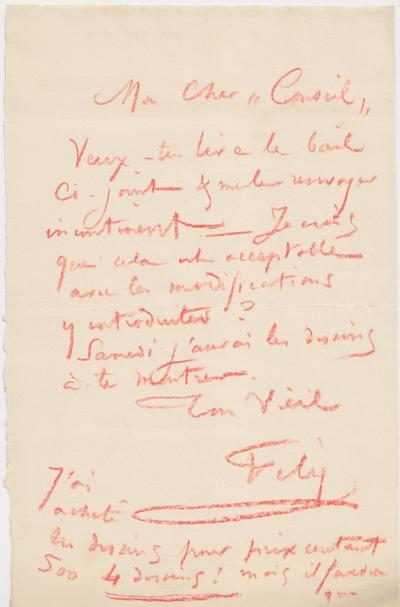 Mon Cher "Conseil"
Veux-tu lire le bail
ci-joint & me le renvoyer
incontinent — Je crois
que cela est acceptable
avec les modifications
y introduites ?
Samedi j'aurai les dessins
à te montrer.
Ton Vieil
Fély
J'ai
acheté
les dessins pour prix coutant
500 4 dessins ! mais il faudra
que